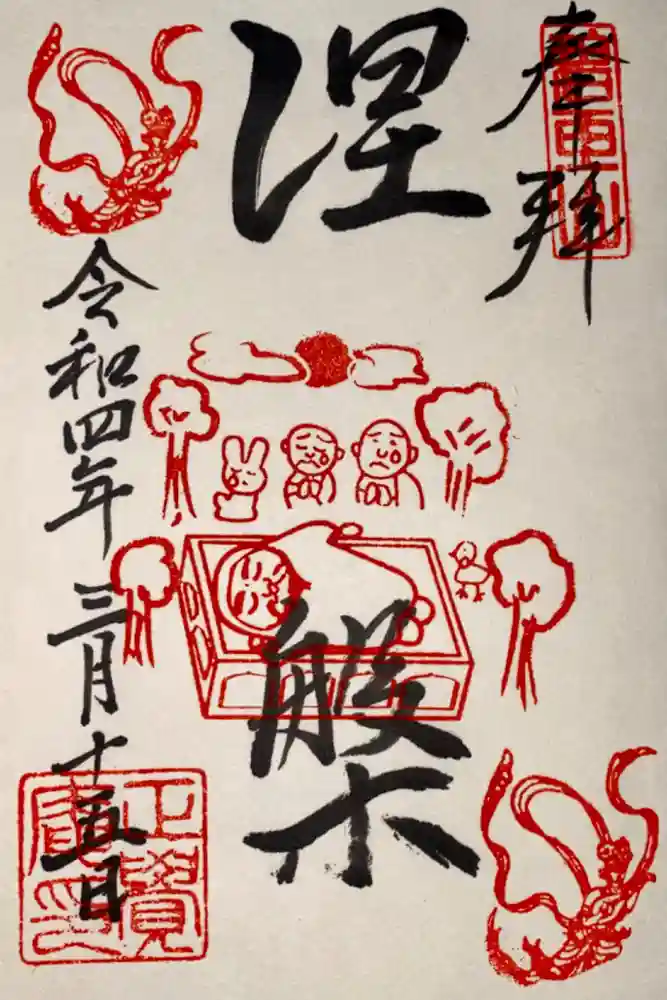 奉拝
涅
槃
令和四年三月十五日
正覺